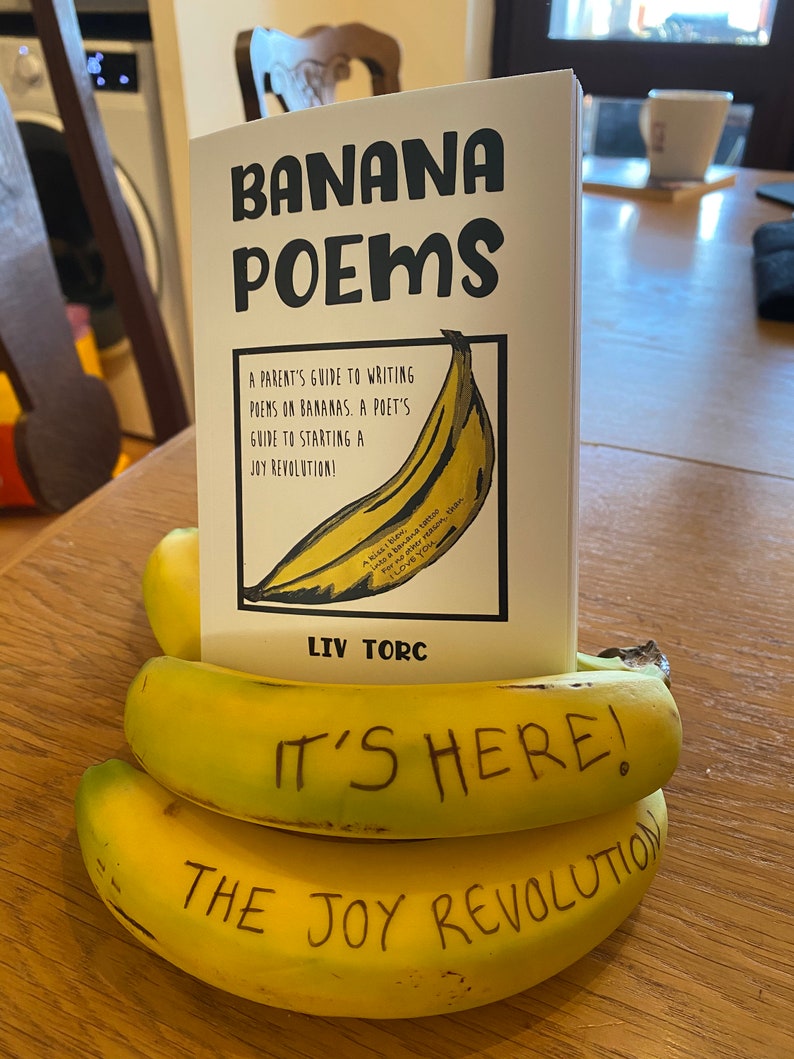 BANANA
POEMS
A PARENT'S GUIDE TO WRITING
POEMS ON BANANAS. A POET'S
GUIDE TO STARTING A
JOY REVOLUTION!
A kiss I blew,
into a banana tattoo
For no other reason, than
I LOVE YOU
LIV TORC
IT'S HERE!
THE JOY REVOLUTION